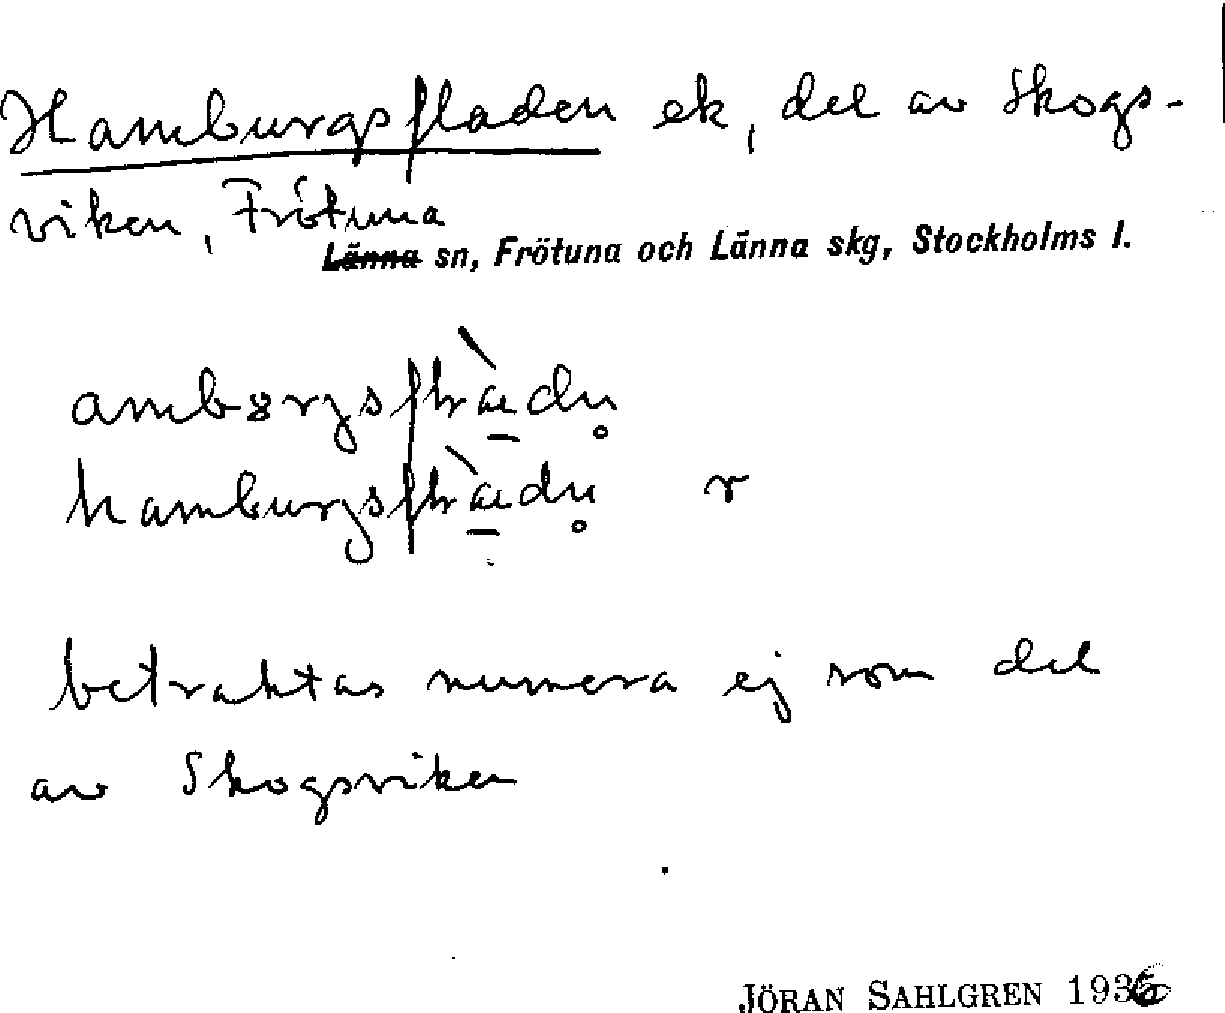 Hamburgsfladen ek, del av Skogs-
viken, Frötuna
Länna sn, Frötuna och Länna skg, Stockholms l.
r
betraktas numera ej som del
av Skogsviken
JÖRAN SAHLGREN 1936